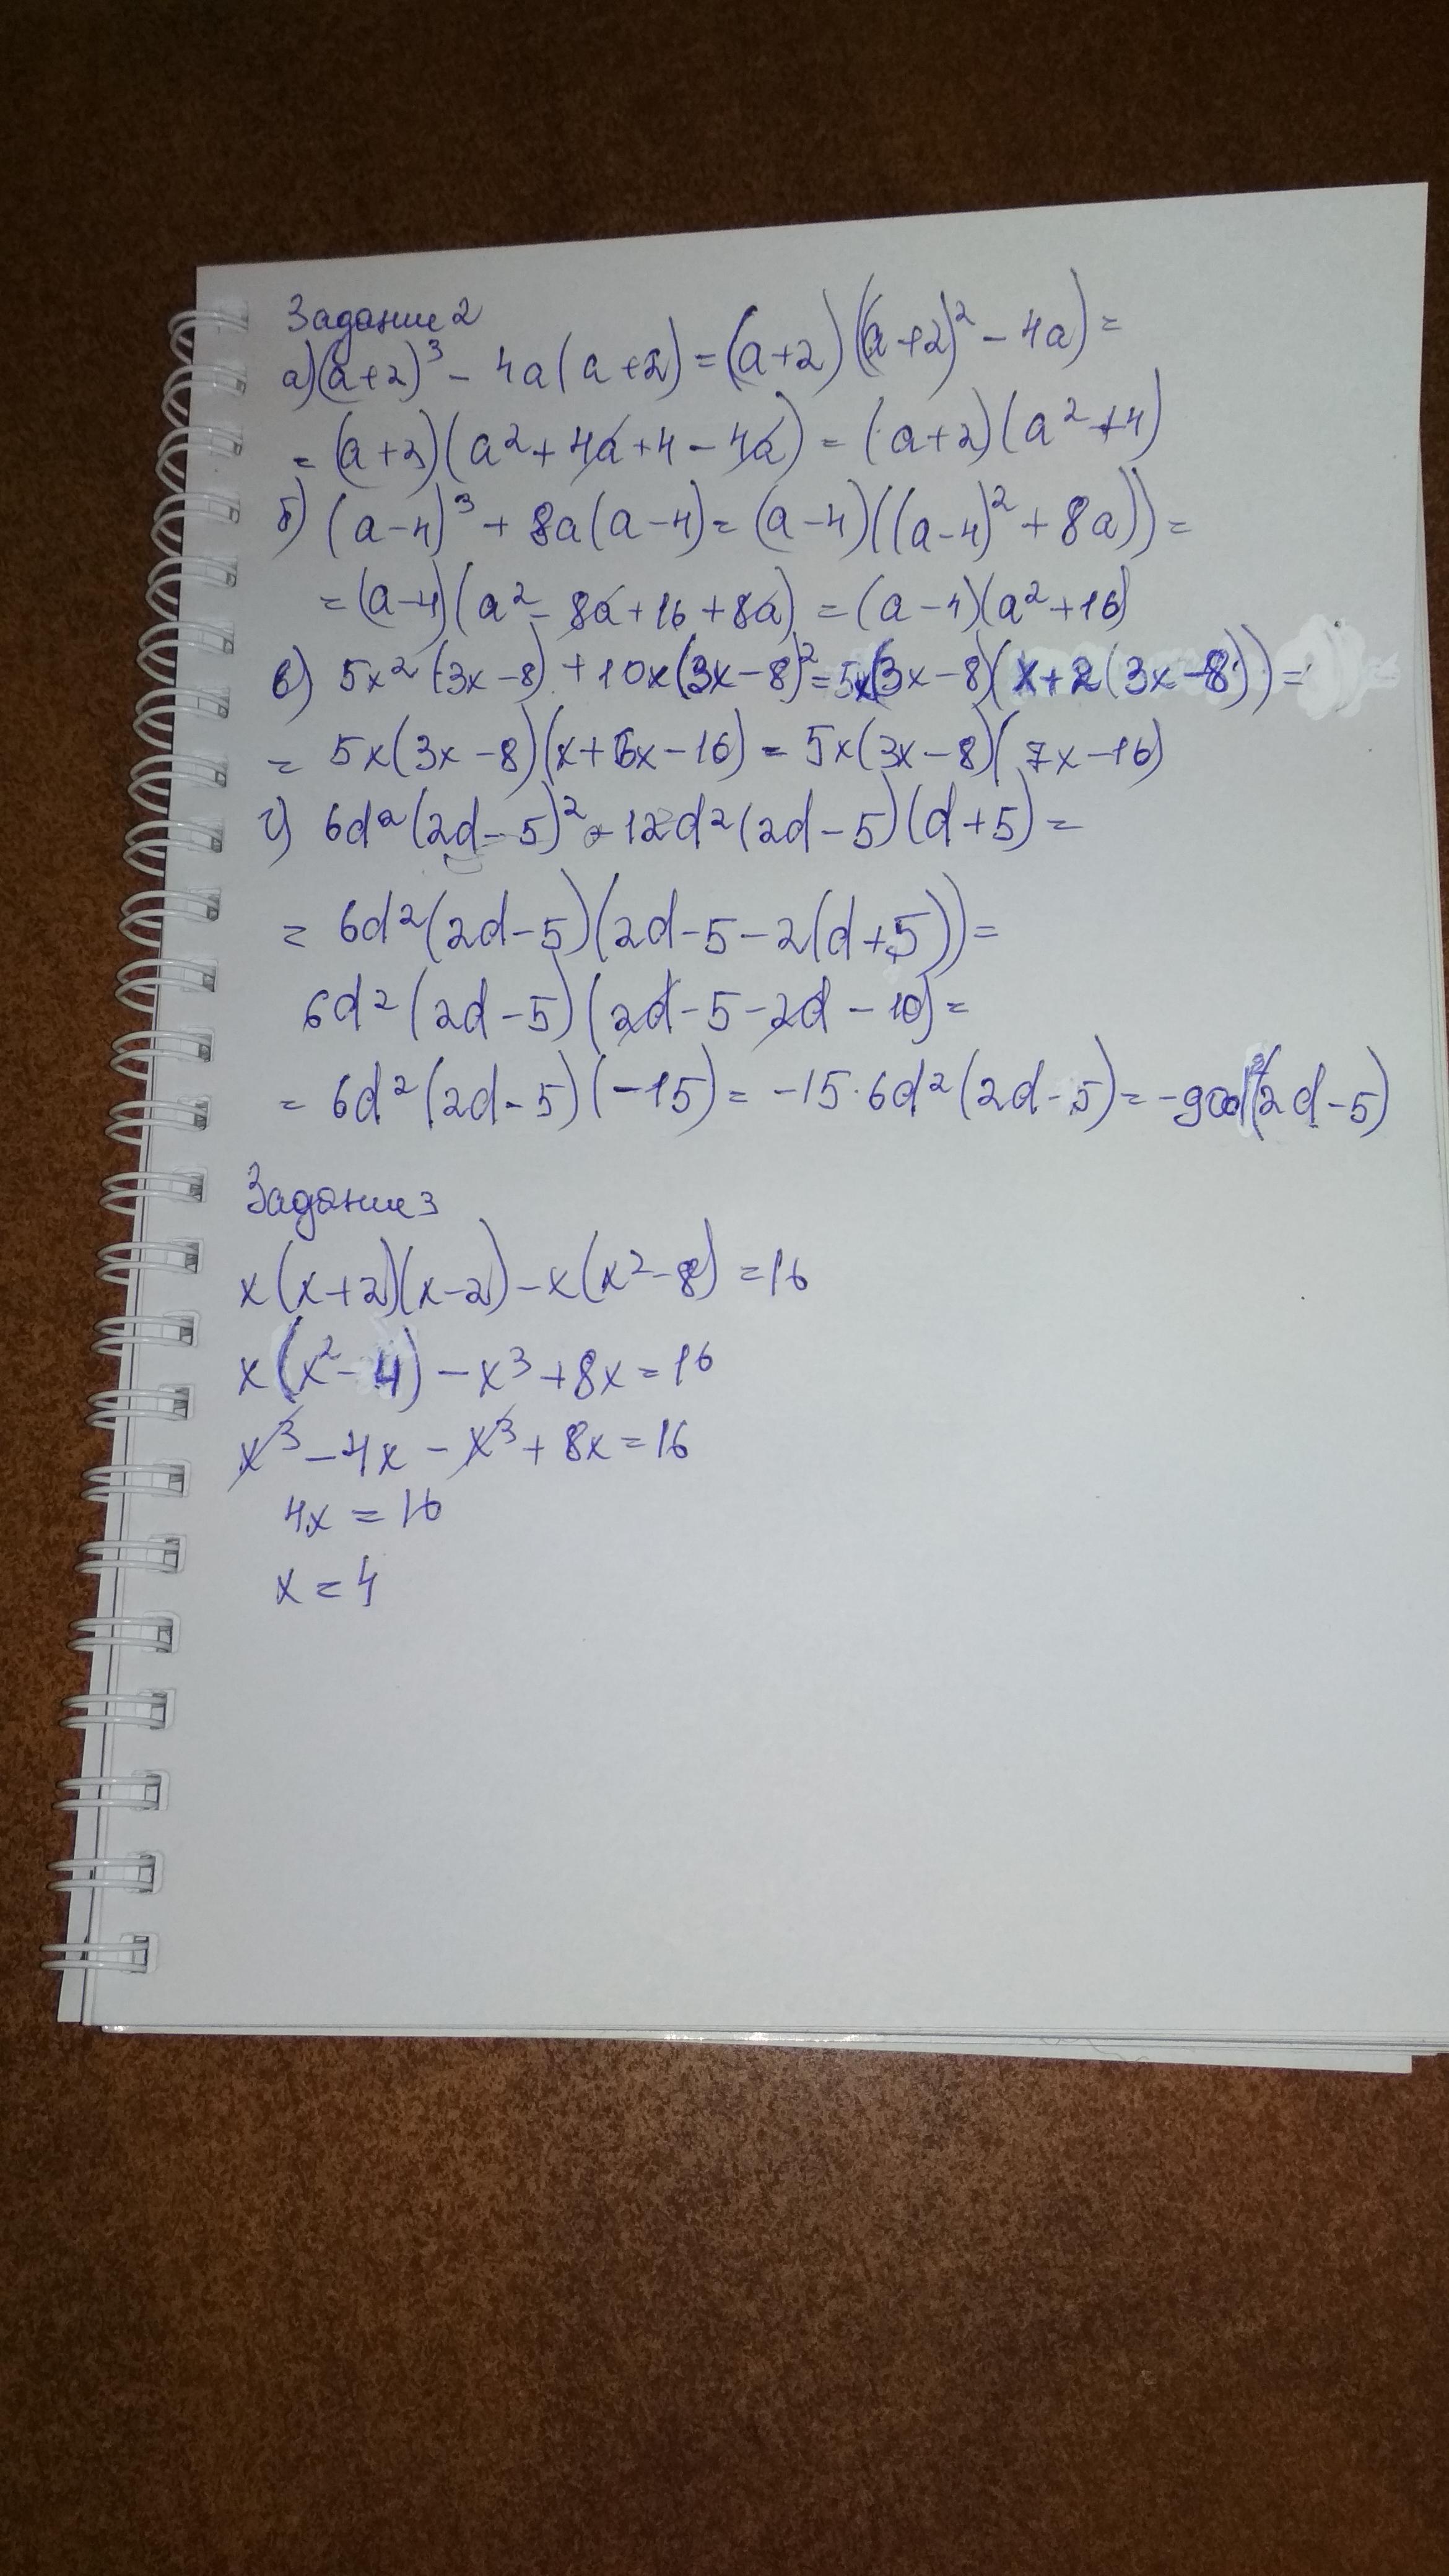 Задание 2
а) (a+2)³ - 4a(a+2) = (a+2)((a+2)² - 4a) =
= (a+2)(a² + 4a + 4 - 4a) = (a+2)(a² + 4)
б) (a-4)³ + 8a(a-4) = (a-4)((a-4)² + 8a)) =
= (a-4)(a² - 8a + 16 + 8a) = (a-4)(a² + 16)
в) 5x² (3x-8) + 10x(3x-8)² = 5x(3x-8)(x+2(3x-8)) =
= 5x(3x-8)(x+6x-16) = 5x(3x-8)(7x-16)
г) 6d²(2d-5)² - 12d²(2d-5)(d+5) =
= 6d²(2d-5)(2d-5-2(d+5)) =
6d²(2d-5)(2d-5-2d-10) =
= 6d²(2d-5)(-15) = -15·6d²(2d-5) = -90d²(2d-5)
Задание 3
x(x+2)(x-2) - x(x²-8) = 16
x(x²-4) - x³ + 8x = 16
x³ - 4x - x³ + 8x = 16
4x = 16
x = 4